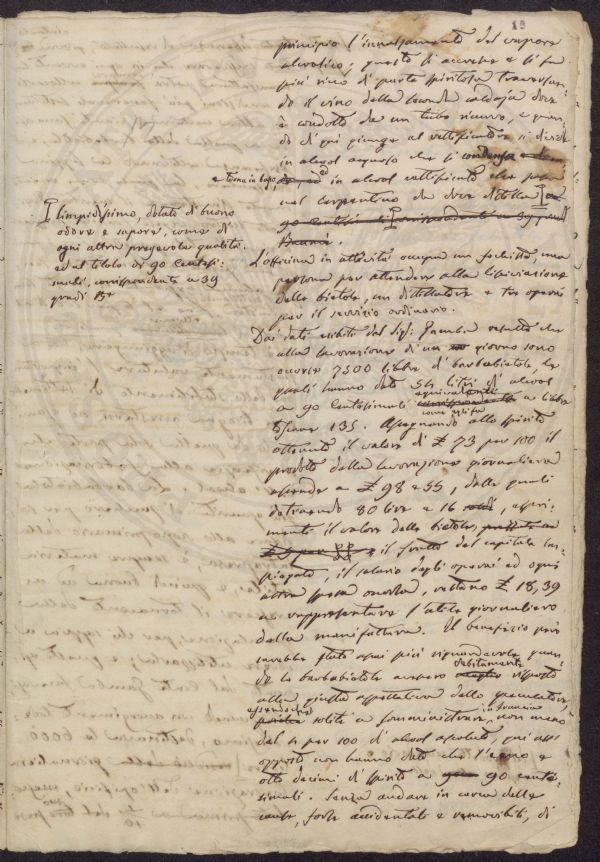 19
principio l'innalzamento del vapore
alcoolico; questo si accresce e si fa
più ricco di parte spiritosa traversan-
do il vino della seconda caldaja dove
è condotto da un tubo ricurvo, e quan-
do di qui giunge al rettificatore si divide
in alcool acquoso che si condensa
e torna in basso, ed in alcool rettificato che passa
nel serpentino da dove distilla
90 centesi corrispondente a 39 gradi
Baumé.
limpidissimo, dotato di buono
odore e sapore, come di
ogni altra pregevole qualità
ed al titolo di 90 centesi-
mali, corrispondente a 39
gradi B.
L'officina in attività occupa un fochista, una
persona per attendere alla liscivazione
delle bietole, un distillatore e tre operai
per il servizio ordinario.
Dai dati esibiti dal Sig. risulta che
alla lavorazione di un giorno sono
occorse 7500 libbre di barbabietole, le
quali hanno dato 54 litri di alcool
a 90 centesimali equivalenti a libbre
toscane 135. Assegnando allo spirito
ottenuto il valore di £ 73 per 100 il
prodotto della lavorazione giornaliera
ascende a £ 98 e 55, dalle quali
detraendo 80 lire e 16, espri-
menti il valore delle bietole,
il frutto del capitale im-
piegato, il salario degli operai ed ogni
altra spesa occorsa, restano £ 18,39
a rappresentare l'utile giornaliero
della manifattura. Il benefizio però
sarebbe stato assai più riguardevole quan-
do le barbabietole avessero debitamente risposto
alla giusta aspettativa dello speculatore,
essendo solite a somministrare in Francia non meno
del 4 per 100 di alcool assoluto, qui all'
opposto non hanno dato che l'uno e
otto decimi di spirito a 90 cente-
simali. Senza andare in cerca delle
cause, forse accidentali e removibili, di